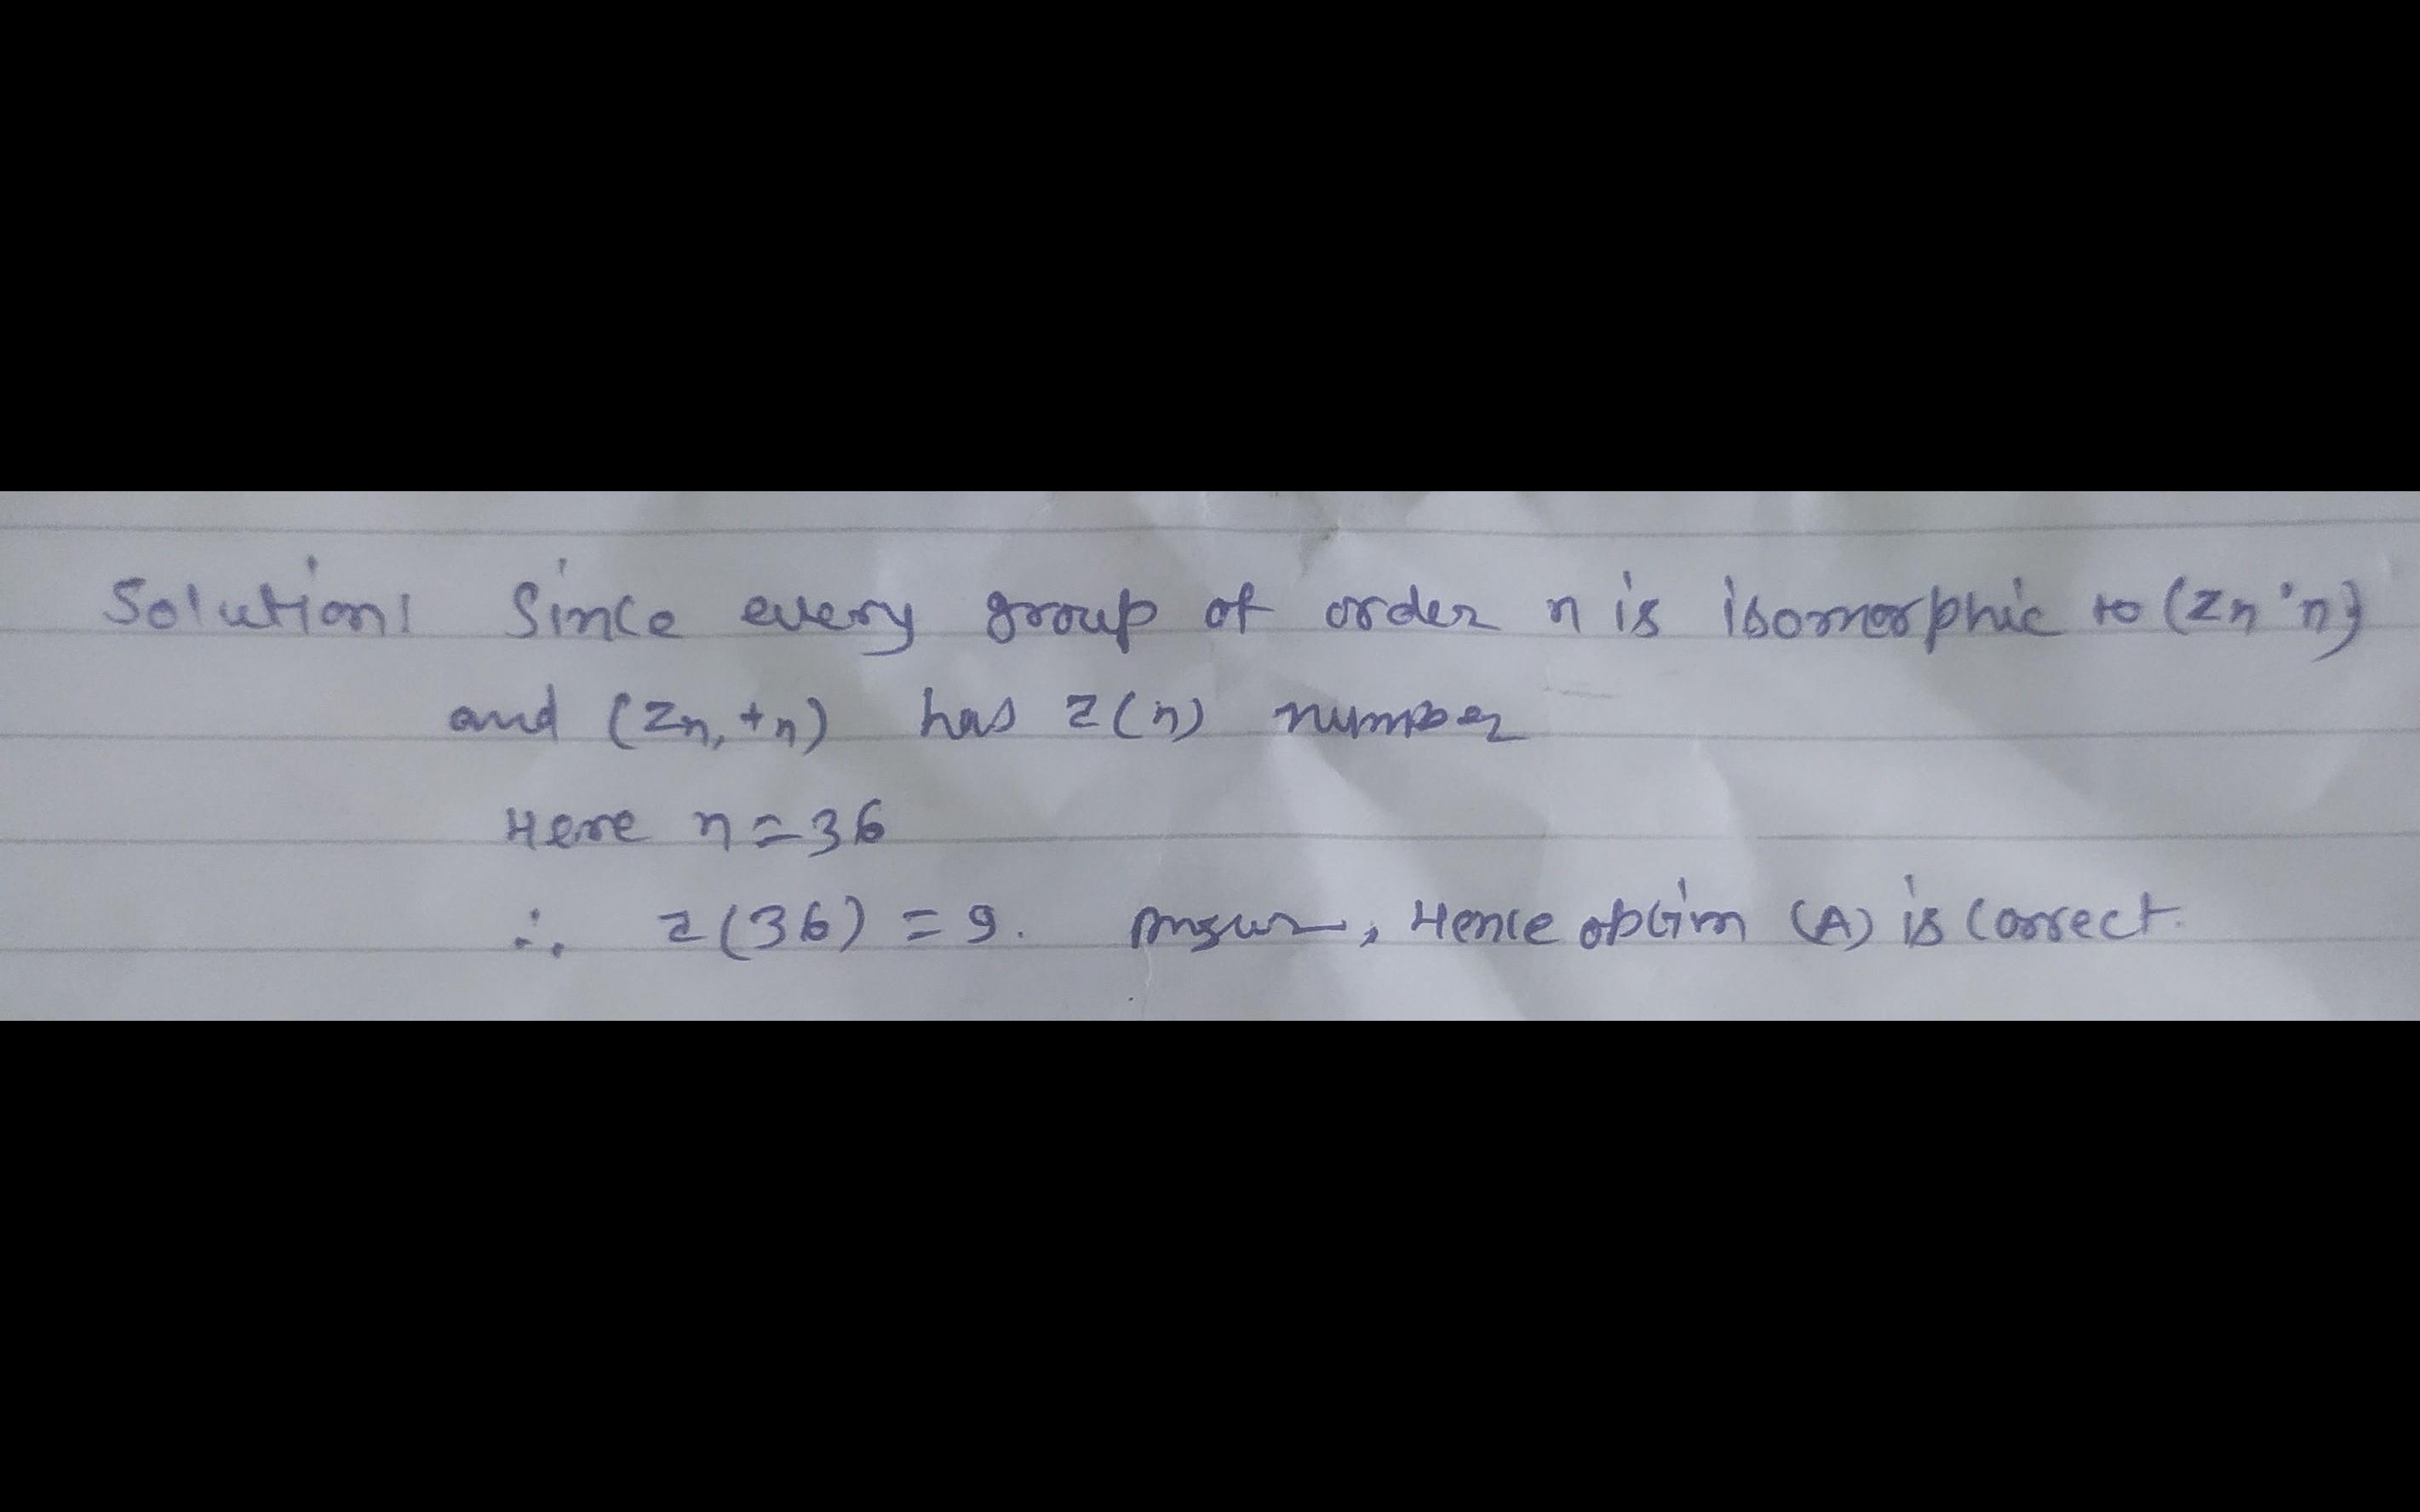 Solution: Since every group of order n is isomorphic to (Zn 'n)
and (Zn, +n) has z(n) number
Here n=36
∴ z(36) = 9. Answer, Hence option (A) is correct.